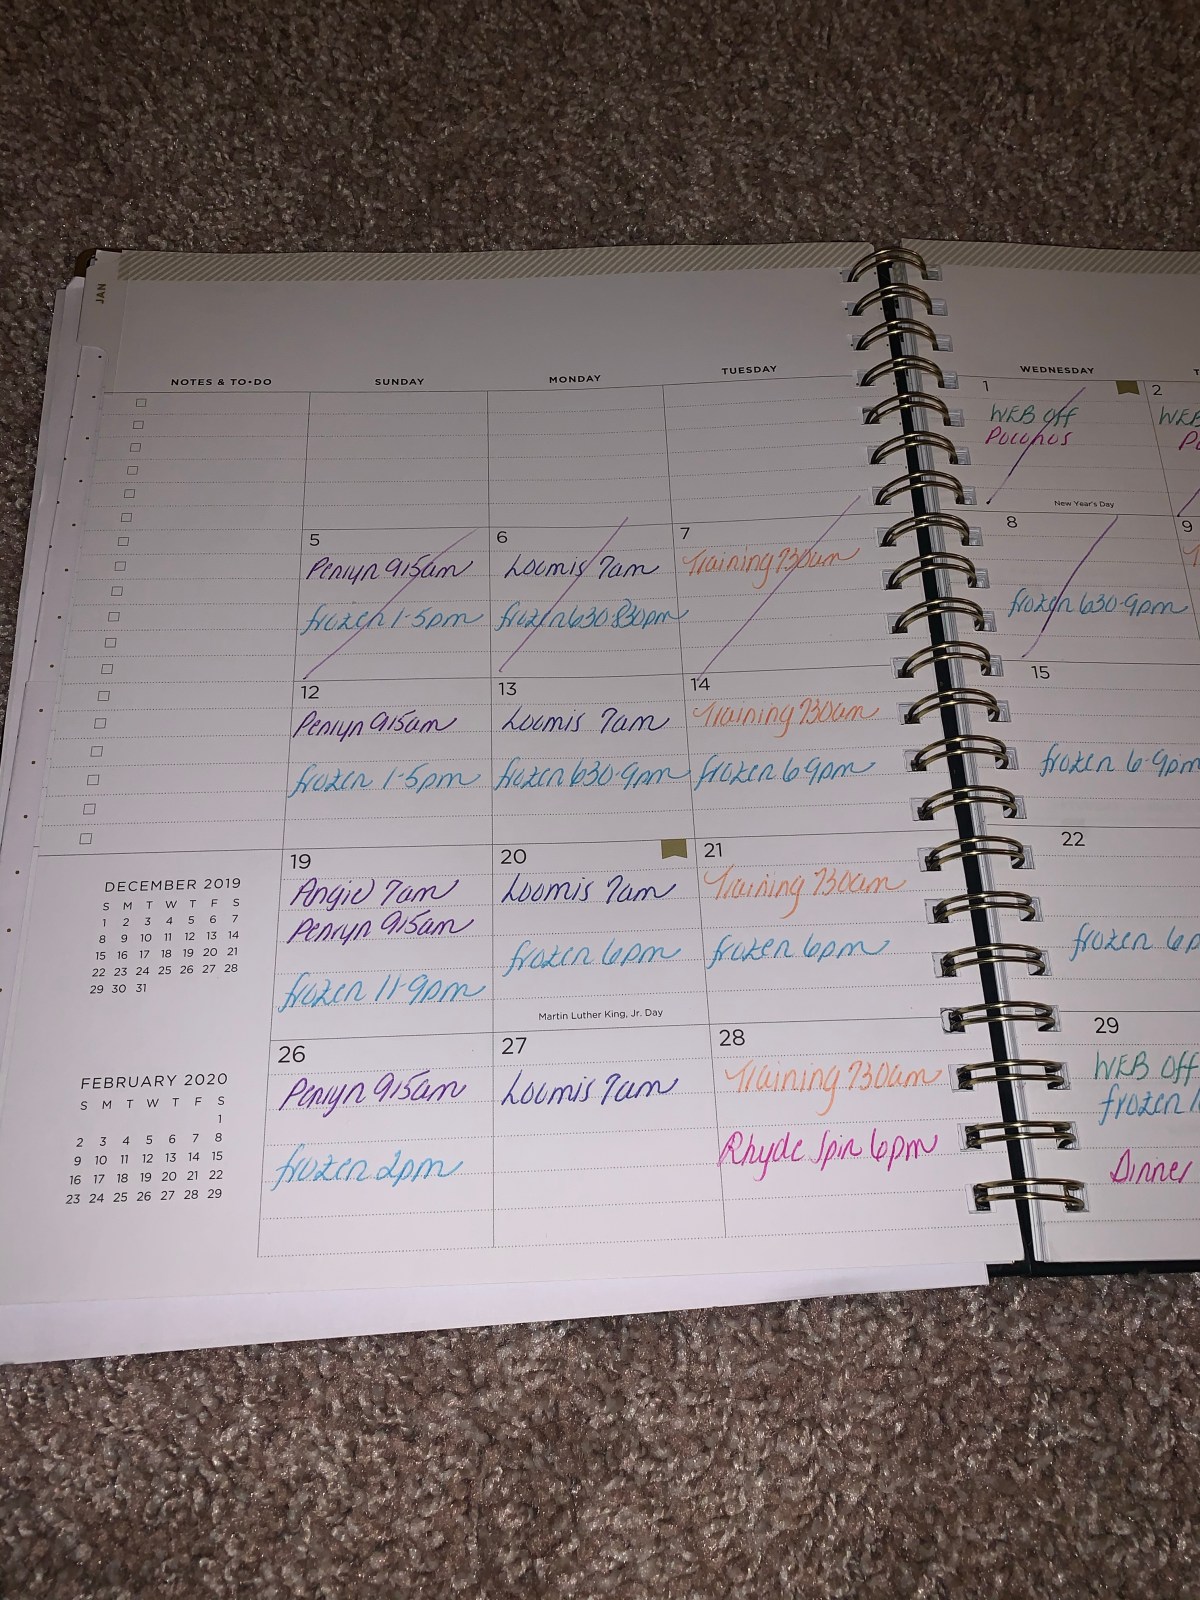 JAN
NOTES & TO•DO
SUNDAY
MONDAY
TUESDAY
WEDNESDAY
T
1
WEB Off
Poconos
New Year's Day
2
WEB
5
Penryn 915am
frozen 1-5pm
6
Loomis 7am
frozen 630-830pm
7
Training 730am
8
frozen 630-9pm
9
12
Penryn 915am
frozen 1-5pm
13
Loomis 7am
frozen 630-9pm
14
Training 730am
frozen 6-9pm
15
frozen 6-9pm
19
Angie 7am
Penryn 915am
frozen 11-9pm
20
Loomis 7am
frozen 6pm
Martin Luther King, Jr. Day
21
Training 730am
frozen 6pm
22
frozen 6p
26
Penryn 915am
frozen 2pm
27
Loomis 7am
28
Training 730am
Rhyde Spin 6pm
29
WEB Off
frozen
Dinner
DECEMBER 2019
S M T W T F S
1 2 3 4 5 6 7
8 9 10 11 12 13 14
15 16 17 18 19 20 21
22 23 24 25 26 27 28
29 30 31
FEBRUARY 2020
S M T W T F S
1
2 3 4 5 6 7 8
9 10 11 12 13 14 15
16 17 18 19 20 21 22
23 24 25 26 27 28 29